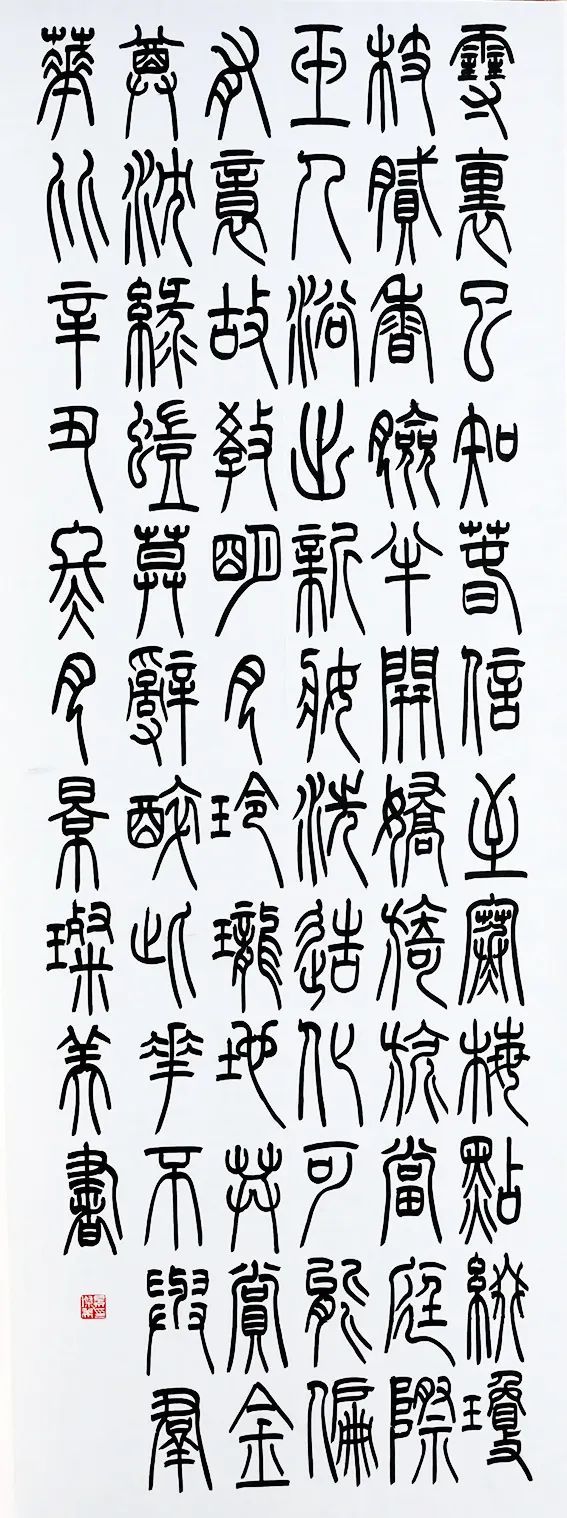 雪裏已知春信至寒梅點綴瓊
枝膩香臉半開嬌旖旎當庭際
玉人浴出新妝洗造化可能偏
有意故教明月玲瓏地共賞金
尊沈綠蟻莫辭醉此花不與羣
華比辛丑冬月景璨美書